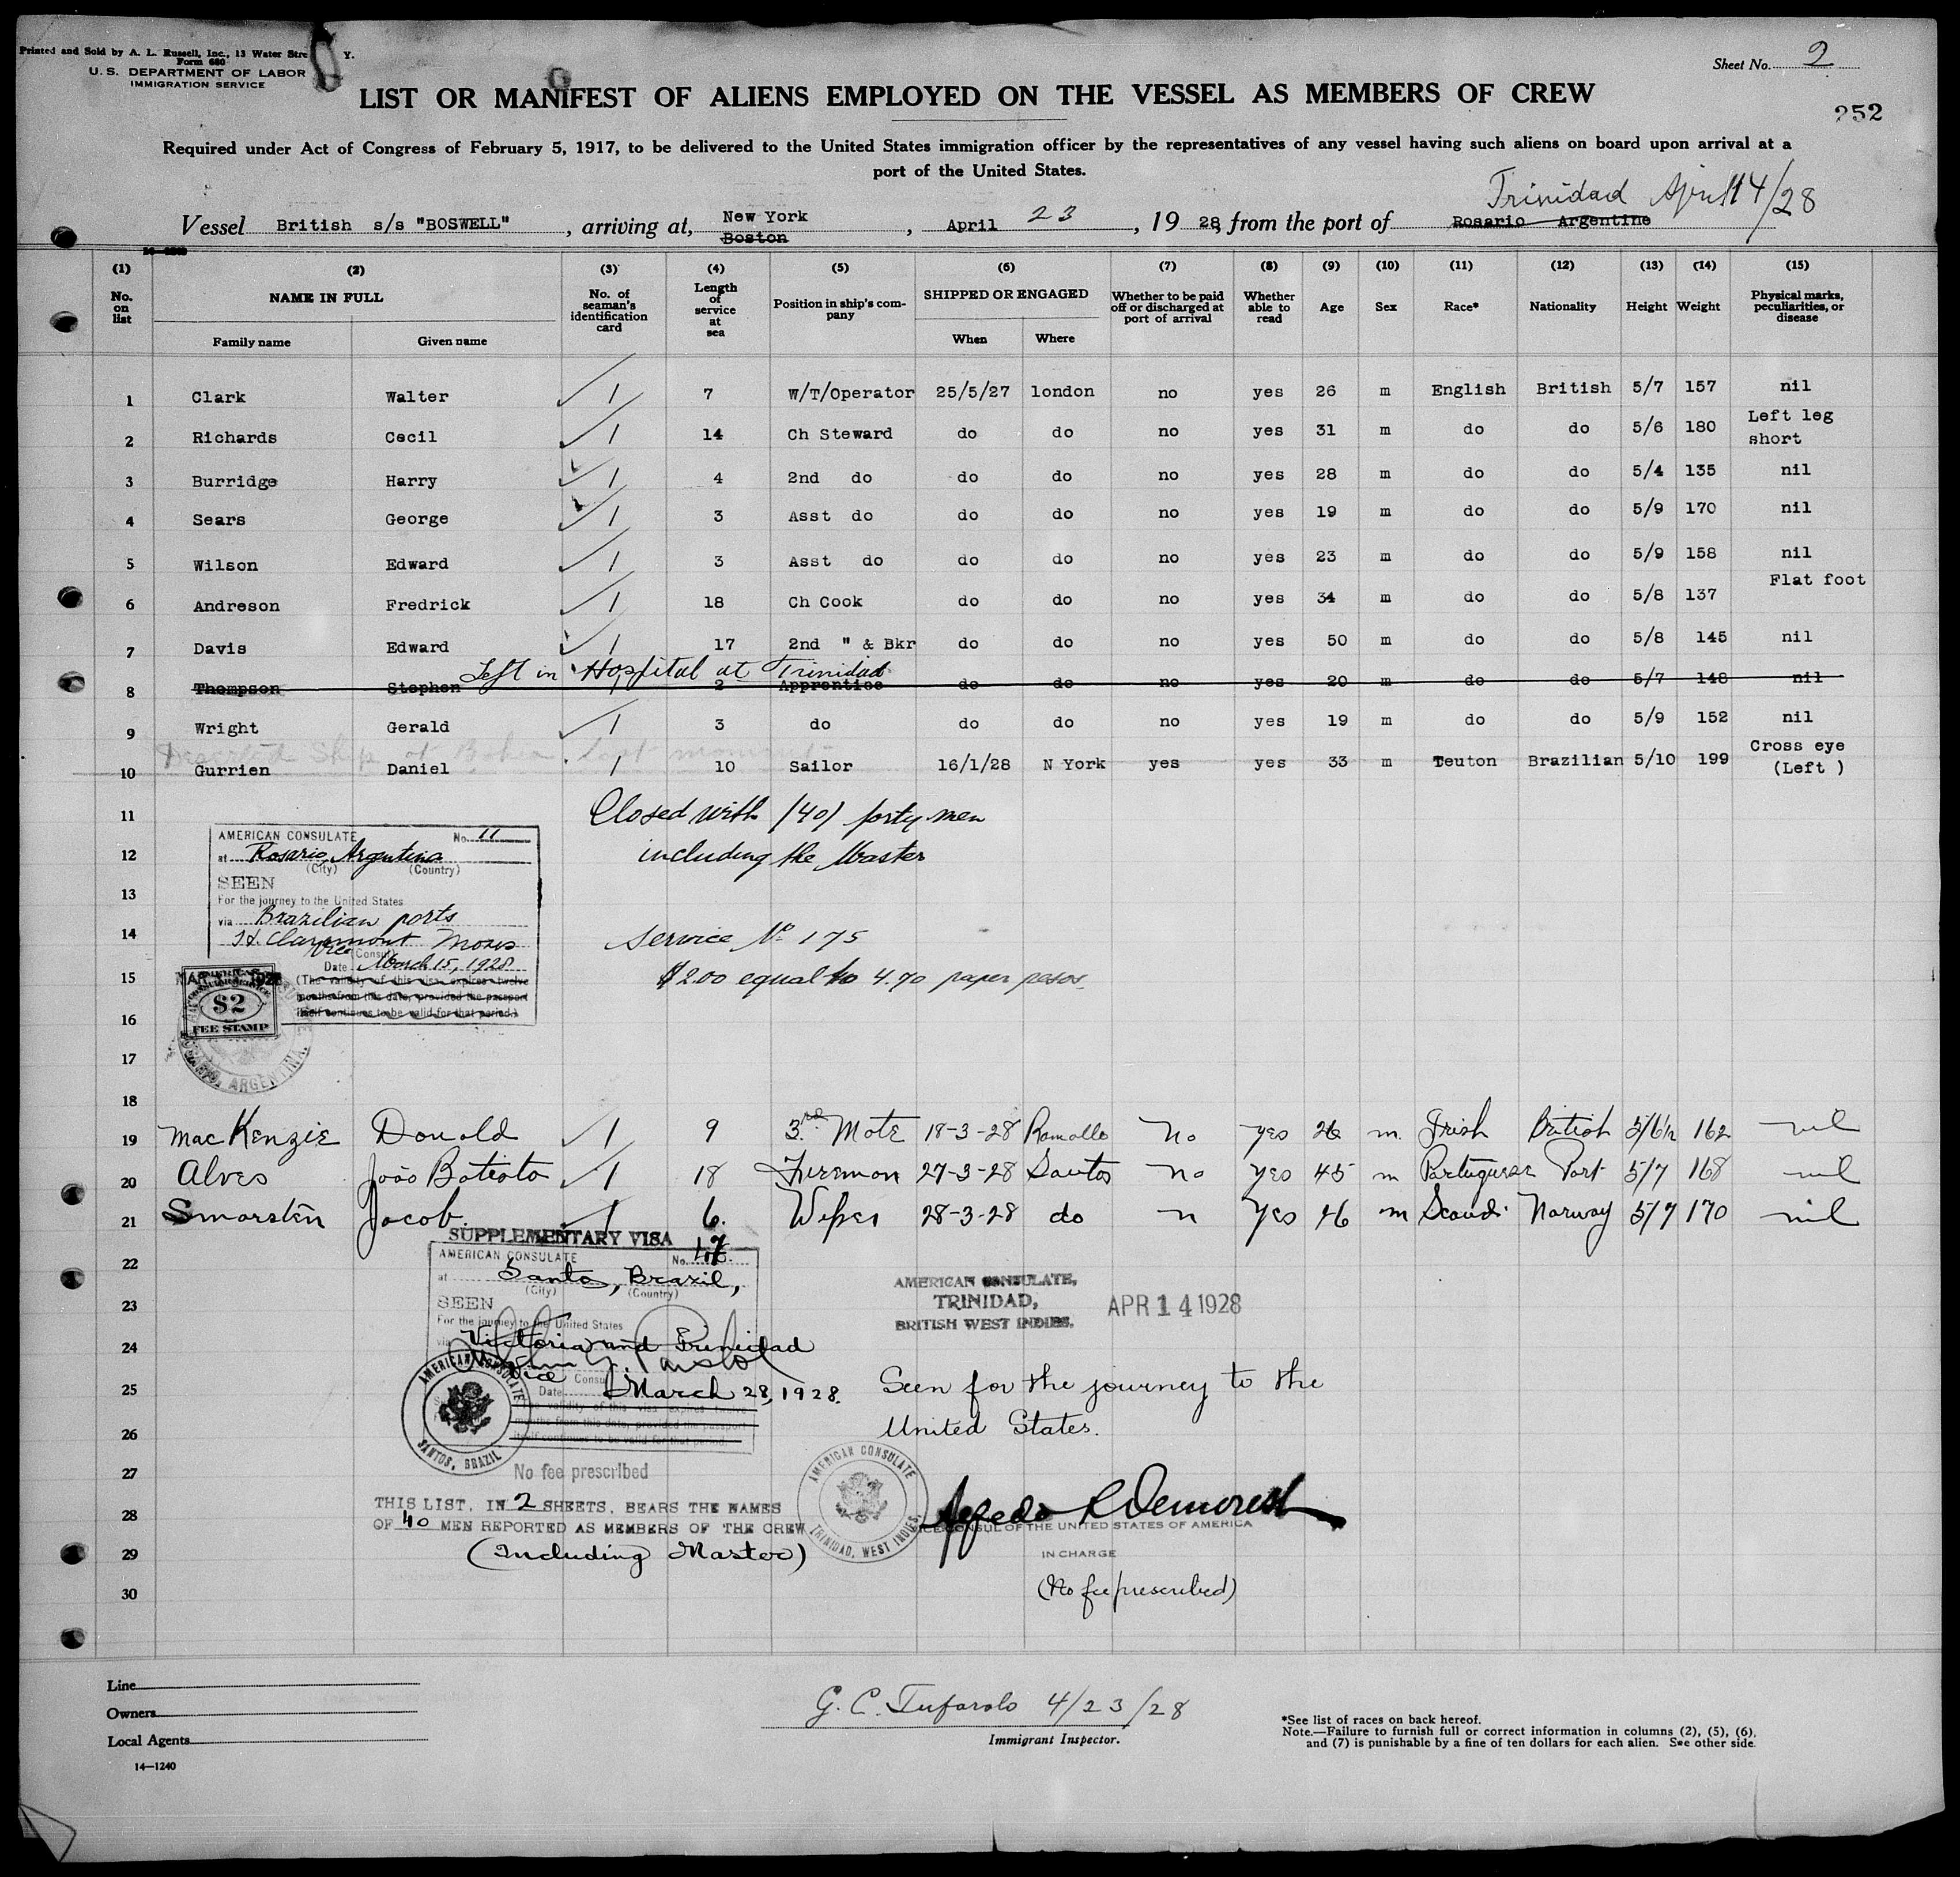 Printed and Sold by A. L. Russell, Inc., 13 Water Stre Y.
Form 680
U. S. DEPARTMENT OF LABOR
IMMIGRATION SERVICE
Sheet No. 2
LIST OR MANIFEST OF ALIENS EMPLOYED ON THE VESSEL AS MEMBERS OF CREW
252
Required under Act of Congress of February 5, 1917, to be delivered to the United States immigration officer by the representatives of any vessel having such aliens on board upon arrival at a
port of the United States.
Trinidad April 14/28
Vessel British s/s "BOSWELL", arriving at, New York Boston, April 23, 1928, from the port of Rosario Argentine
(1) (2) (3) (4) (5) (6) (7) (8) (9) (10) (11) (12) (13) (14) (15)
No. on list
NAME IN FULL
Family name Given name
No. of seaman's identification card
Length of service at sea
Position in ship's company
SHIPPED OR ENGAGED
When Where
Whether to be paid off or discharged at port of arrival
Whether able to read
Age Sex Race* Nationality Height Weight
Physical marks, peculiarities, or disease
1 Clark Walter 1 7 W/T/Operator 25/5/27 london no yes 26 m English British 5/7 157 nil
2 Richards Cecil 1 14 Ch Steward do do no yes 31 m do do 5/6 180 Left leg short
3 Burridge Harry 1 4 2nd do do do no yes 28 m do do 5/4 135 nil
4 Sears George 1 3 Asst do do do no yes 19 m do do 5/9 170 nil
5 Wilson Edward 1 3 Asst do do do no yes 23 m do do 5/9 158 nil
6 Andreson Fredrick 1 18 Ch Cook do do no yes 34 m do do 5/8 137 Flat foot
7 Davis Edward 1 17 2nd " & Bkr do do no yes 50 m do do 5/8 145 nil
Left in Hospital at Trinidad
8 Thompson Stephen 2 Apprentice do do no yes 20 m do do 5/7 148 nil
9 Wright Gerald 1 3 do do do no yes 19 m do do 5/9 152 nil
Deserted Ship at Bahia last moment
10 Gurrien Daniel 1 10 Sailor 16/1/28 N York yes yes 33 m Teuton Brazilian 5/10 199 Cross eye (Left )
11
Closed with (40) forty men
12
including the Master
13
14
Service No 175
15
$2.00 equal to 4.70 paper pesos.
16
17
18
AMERICAN CONSULATE No. 11
at Rosario, Argentina
(City) (Country)
SEEN
For the journey to the United States
via Brazilian ports
H. Claremont Moses
Vice Consul
Date March 15, 1928
(The validity of this visa expires twelve
months from this date, provided the passport
itself continues to be valid for that period.)
$2
FEE STAMP
ARGENTINA
19 MacKenzie Donald 1 9 3rd Mate 18-3-28 Ramallo No yes 26 m. Irish British 5/6½ 162 nil
20 Alves João Batista 1 18 Fireman 27-3-28 Santos No yes 45 m Portuguese Port 5/7 168 nil
21 Smarsten Jacob 1 6. Wiper 28-3-28 do n yes 46 m Scandi. Norway 5/7 170 nil
22
23
24
25
26
27
28
29
30
SUPPLEMENTARY VISA
AMERICAN CONSULATE No. 17
at Santos, Brazil,
(City) (Country)
SEEN
For the journey to the United States
via Victoria and Trinidad
Vice Consul
Date March 28, 1928.
The validity of this visa expires twelve
months from this date, provided the passport
itself continues to be valid for that period.
AMERICAN CONSULATE
SANTOS, BRAZIL
No fee prescribed
THIS LIST, IN 2 SHEETS, BEARS THE NAMES
OF 40 MEN REPORTED AS MEMBERS OF THE CREW
(Including Master)
AMERICAN CONSULATE,
TRINIDAD,
BRITISH WEST INDIES.
APR 14 1928
Seen for the journey to the
United States.
AMERICAN CONSULATE
TRINIDAD, WEST INDIES
Alfredo R Demorest
VICE CONSUL OF THE UNITED STATES OF AMERICA
IN CHARGE
(No fee prescribed)
Line
Owners
Local Agents
14—1240
G. C. Tufarolo 4/23/28
Immigrant Inspector.
*See list of races on back hereof.
Note.—Failure to furnish full or correct information in columns (2), (5), (6),
and (7) is punishable by a fine of ten dollars for each alien. See other side.